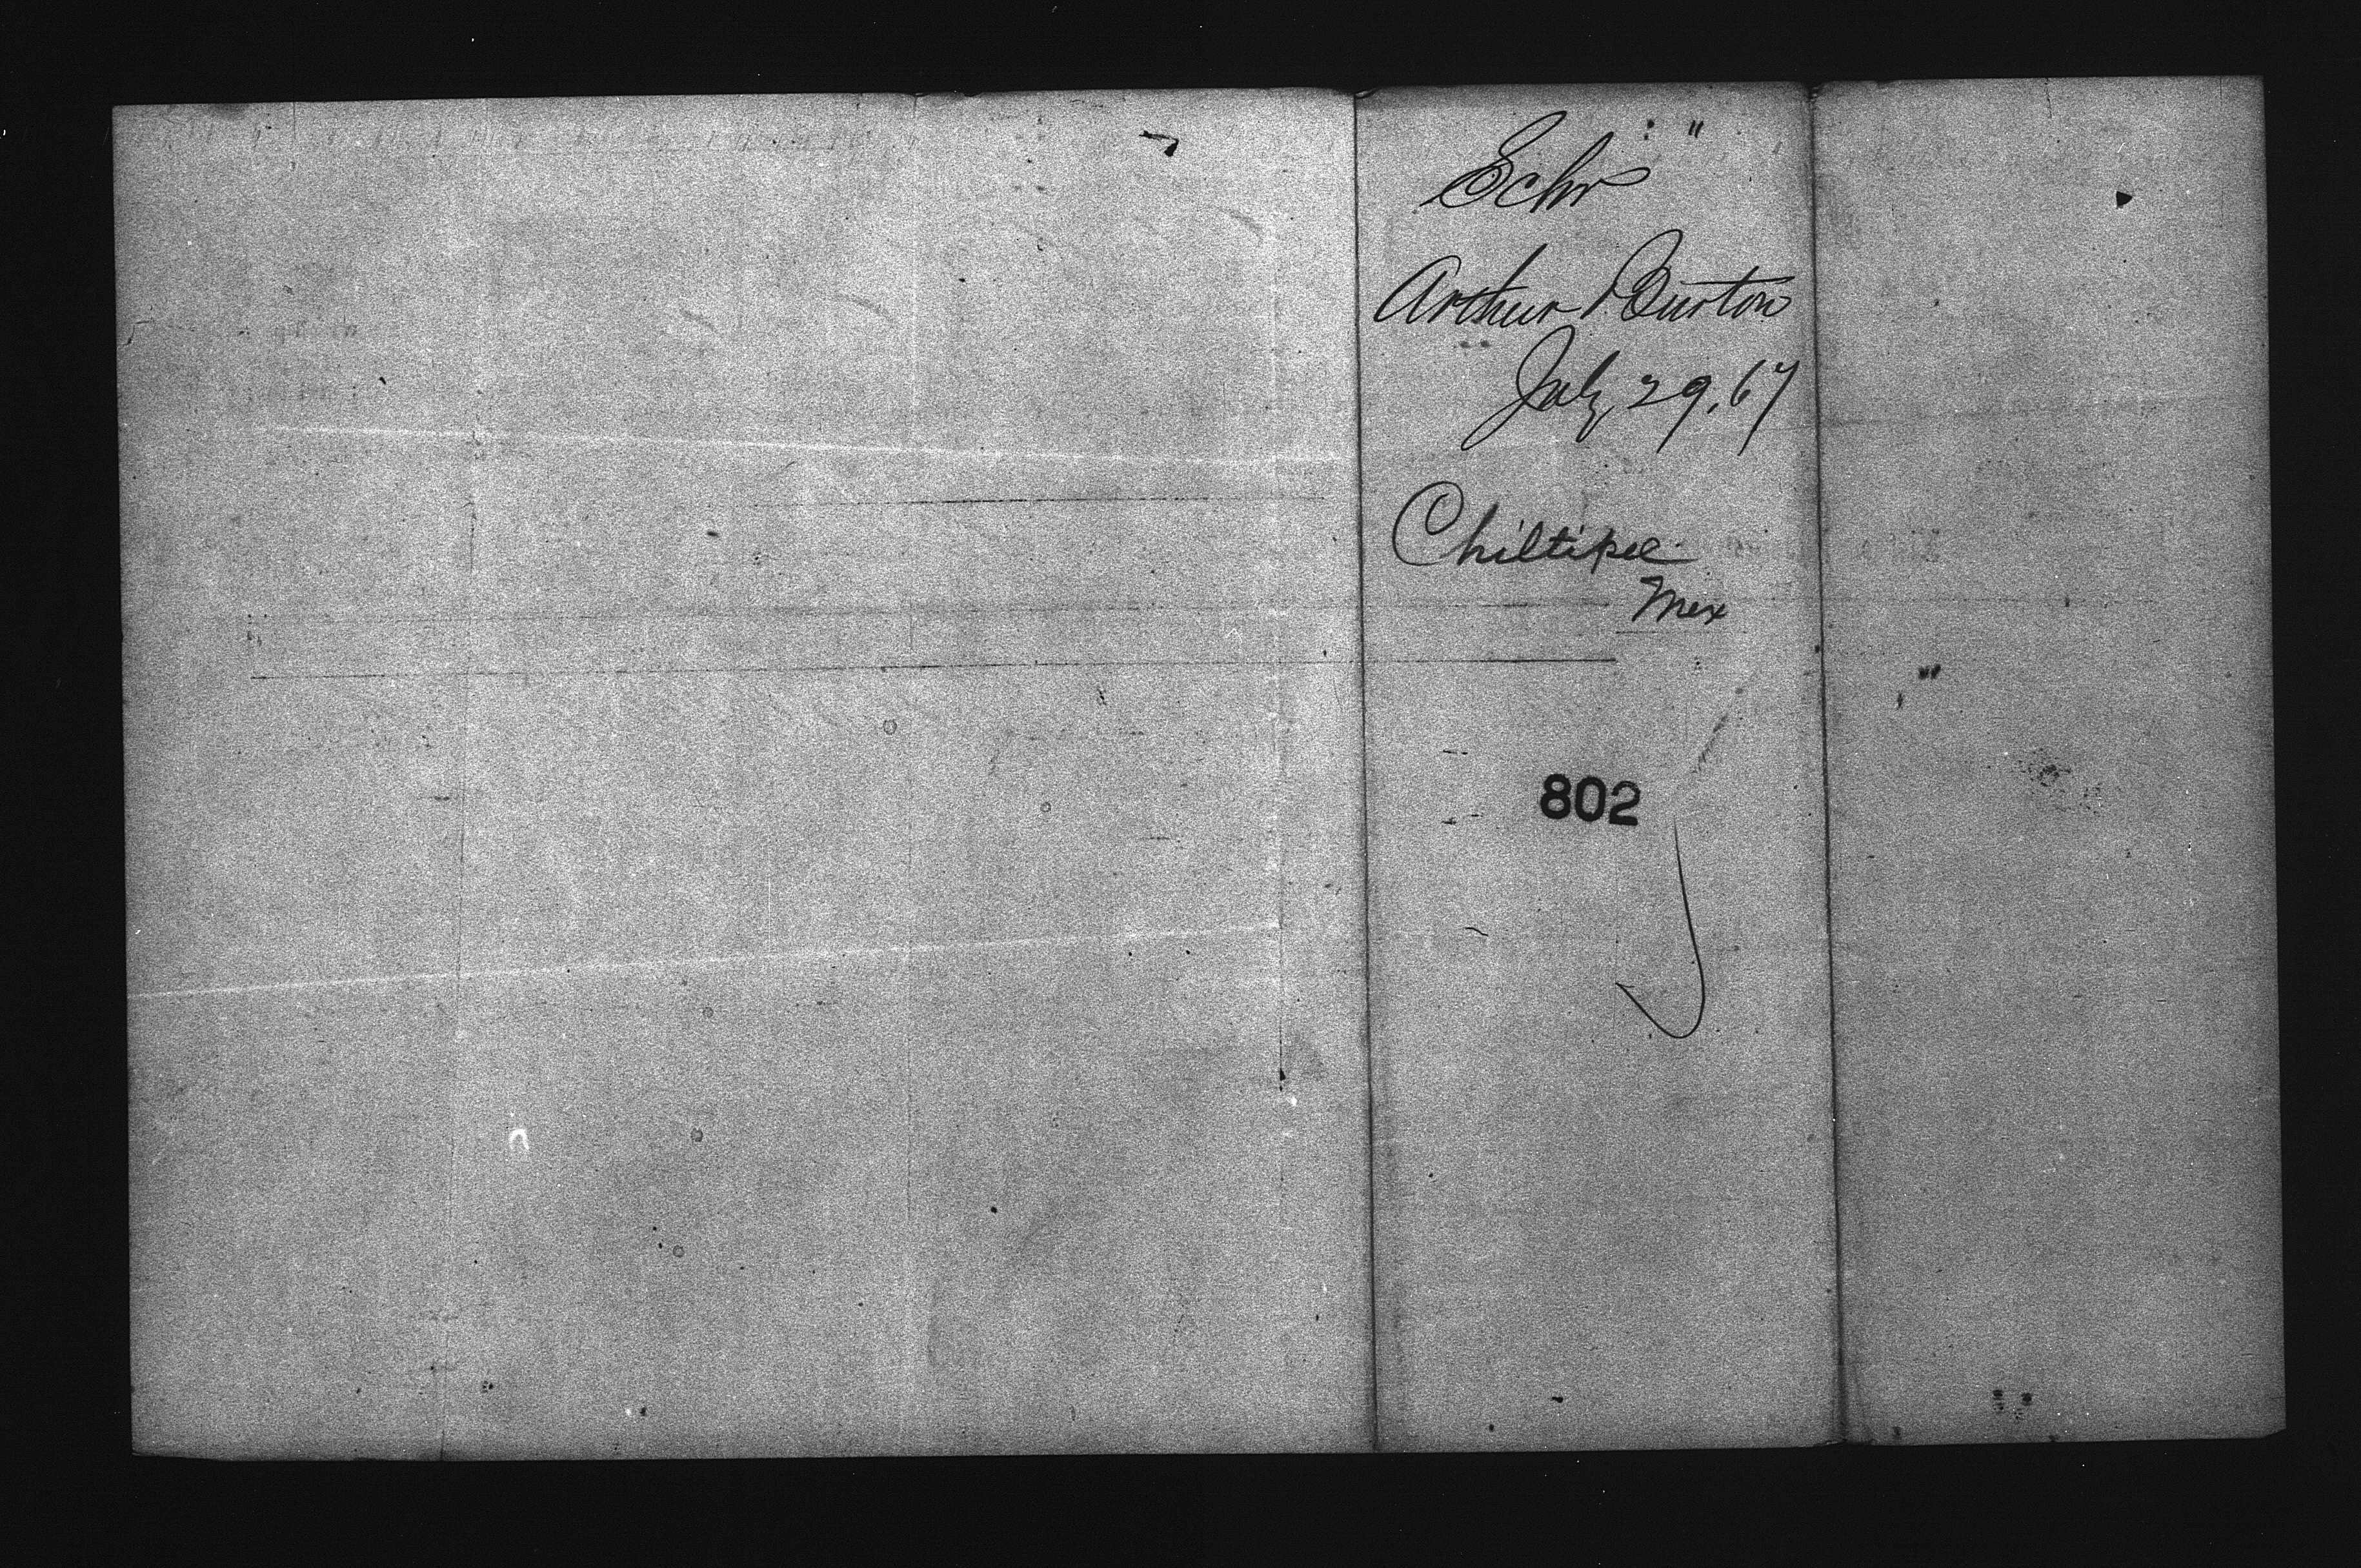 Schr
Arthur Burton
July 29, 67
Chiltipec
Mex
802